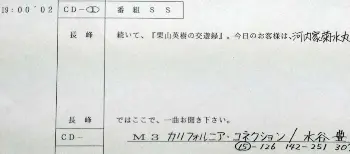 19:00'02 CD-① 番組SS
長峰 続いて、『栗山英樹の交遊録』。今日のお客様は、河内家菊水丸
長峰 ではここで、一曲お聞き下さい。
CD- M3 カリフォルニア・コネクション/水谷豊
⑮-126 142-251 30